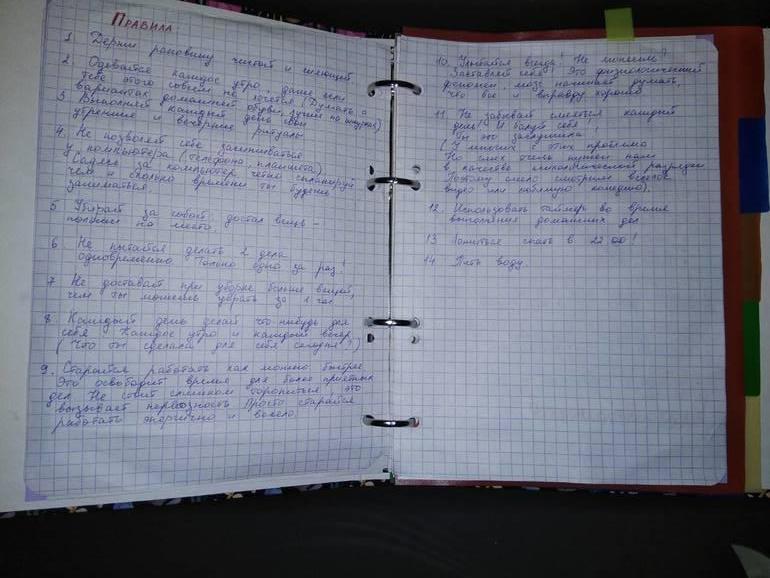 Правила
1 Держи раковину чистой и сияющей
2. Одевайся каждое утро, даже если
тебе этого совсем не хочется (Думать о
вариантах домашней обуви лучше на шнурках)
3 Выполняй каждый день свои
утренние и вечерние ритуалы
4. Не позволяй себе засиживаться
у компьютера (телефона, планшета).
Садясь за компьютер четко спланируй
чем и сколько времени ты будешь
заниматься.
5 Убирай за собой: достал вещь –
положи на место.
6 Не пытайся делать 2 дела
одновременно Только одно за раз!
7 Не доставай при уборке больше вещей,
чем ты можешь убрать за 1 час
8 Каждый день делай что-нибудь для
себя Каждое утро и каждый вечер.
(Что ты сделала для себя сегодня?)
9. Старайся работать как можно быстрее
Это освободит время для более приятных
дел Не стоит слишком торопиться это
вызывает нервозность Просто старайся
работать энергично и весело.
10. Улыбайся всегда! Не можешь?
Заставляй себя. Это физиологический
феномен, мозг начинает думать,
что все и вправду хорошо
11. Не забывай смеяться каждый
день! И балуй себя,
Ты это заслужила
(У многих с этим проблема
Но смех очень нужен нам
в качестве психологической разрядки
Поэтому смело смотрим веселое
видео или любимую комедию).
12. Использовать таймер во время
выполнения домашних дел
13 Ложиться спать в 22 00!
14 Пить воду.